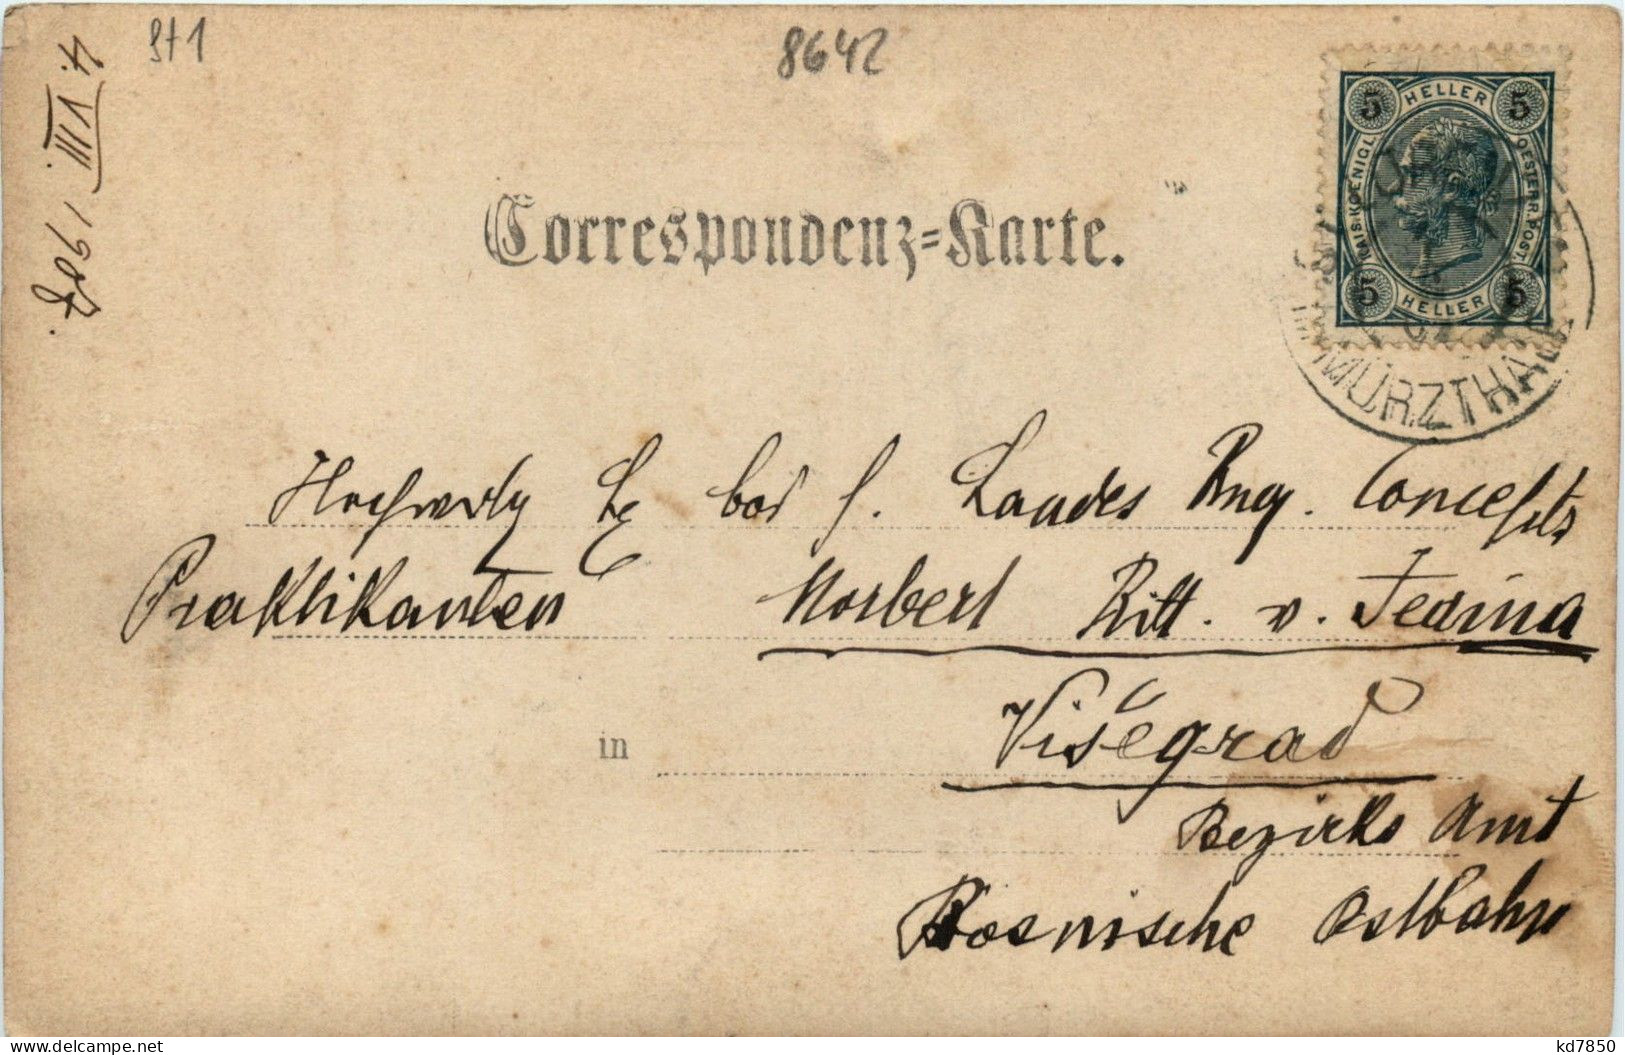 St 1
8642
4. VIII 1907.
Correspondenz-Karte.
5 HELLER 5
KAIS. KOENIGL.
OESTERR. POST
5 HELLER 5
MÜRZTHAL
bos. h. Landes Rng. Concepts
Praktikanten Norbert Ritt. v. Jedina
in Višegrad
Bezirks Amt
Bosnische Ostbahn
kd7850